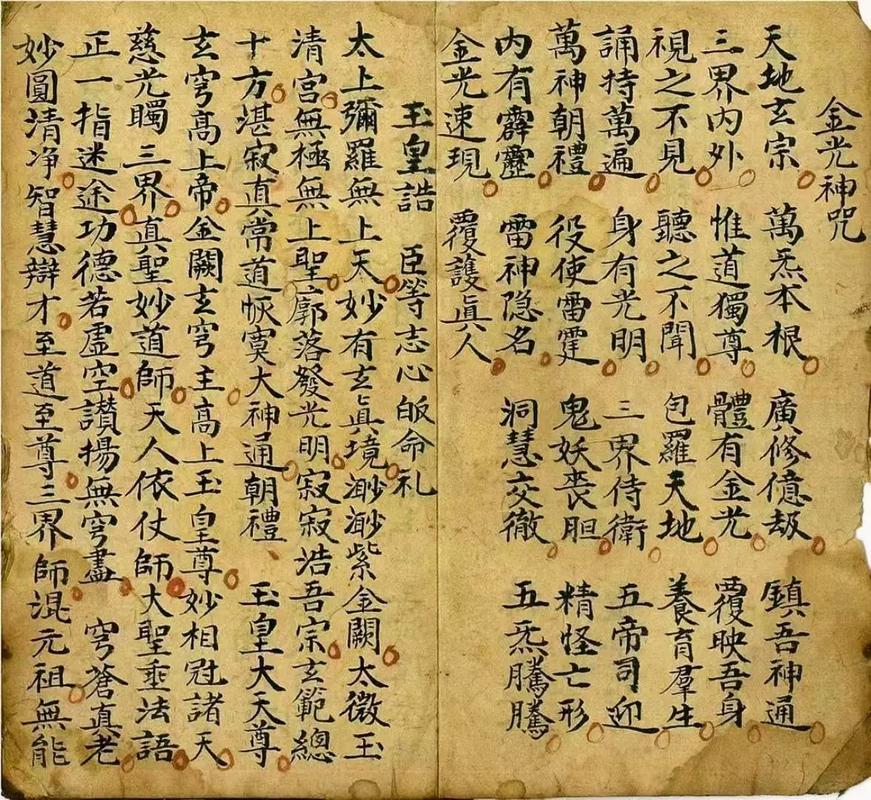 金光神咒
天地玄宗 萬炁本根 廣修億劫 鎮吾神通
三界內外 惟道獨尊 體有金光 覆映吾身
視之不見 聽之不聞 包羅天地 養育羣生
誦持萬遍 身有光明 三界侍衛 五帝司迎
萬神朝禮 役使雷霆 鬼妖喪胆 精怪亡形
內有霹靂 雷神隐名 洞慧交徹 五炁騰騰
金光速現 覆護真人
玉皇誥 臣等志心皈命礼
太上彌羅無上天妙有玄真境渺渺紫金闕太微玉
清宮無極無上聖廓落發光明寂寂浩吾宗玄範總
十方湛寂真常道恢漠大神通朝禮 玉皇大天尊
玄穹高上帝金闕玄穹主高上玉皇尊妙相冠諸天
慈光矚三界真聖妙道師天人依仗師大聖垂法語
正一指迷途功德若虛空讃揚無穹盡 穹蒼真老
妙圓清净智慧辯才至道至尊三界師混元祖無能